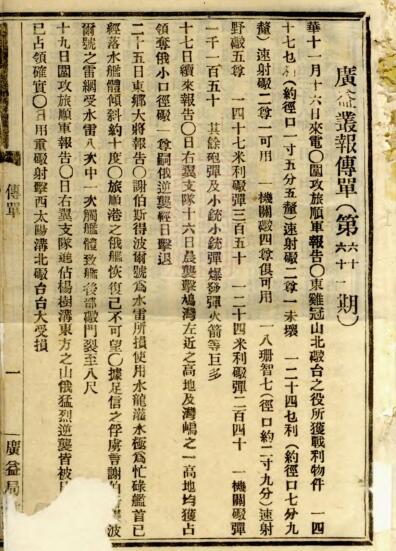 廣益叢報傳單（第六十六十一期）
華十一月十六日來電〇圍攻旅順軍報告〇東雞冠山北礮台之役所獲戰利物件　一四
十七乜利（約徑口一寸五分五釐）速射礮二尊一未壞　一二十四乜利（約徑口七分九
釐）速射礮二尊一可用　一機關礮四尊俱可用　一八珊智七（徑口約二寸九分）速射
野礮五尊　一四十七米利礮彈三百五十　一二十四米利礮彈二百四十　一機關礮彈
一千一百五十　其餘砲彈及小銃小銃彈爆發彈火箭等巨多
十七日續來報告〇日右翼支隊十六日晨襲擊鳩灣左近之高地及灣嶋之一高地均獲占
領奪俄小口徑礮一尊嗣俄逆襲輕日擊退
二十五日東鄉大將報告〇謝伯斯得波爾號爲水雷所損使用水龍灌水極爲忙碌艦首已
經落水艦體傾斜約十度〇旅順港之俄艦恢復已不可望〇據足信之俘虜言謝伯波
爾號之雷網受水雷八次中一次觸艦體致艦後部礮門裂至八尺
十九日圍攻旅順軍報告〇日右翼支隊進佔楊樹溝東方之山俄猛烈逆襲皆被
已占領確實〇日用重礮射擊西太陽溝北礮台台大受損
傳單
一
廣益局